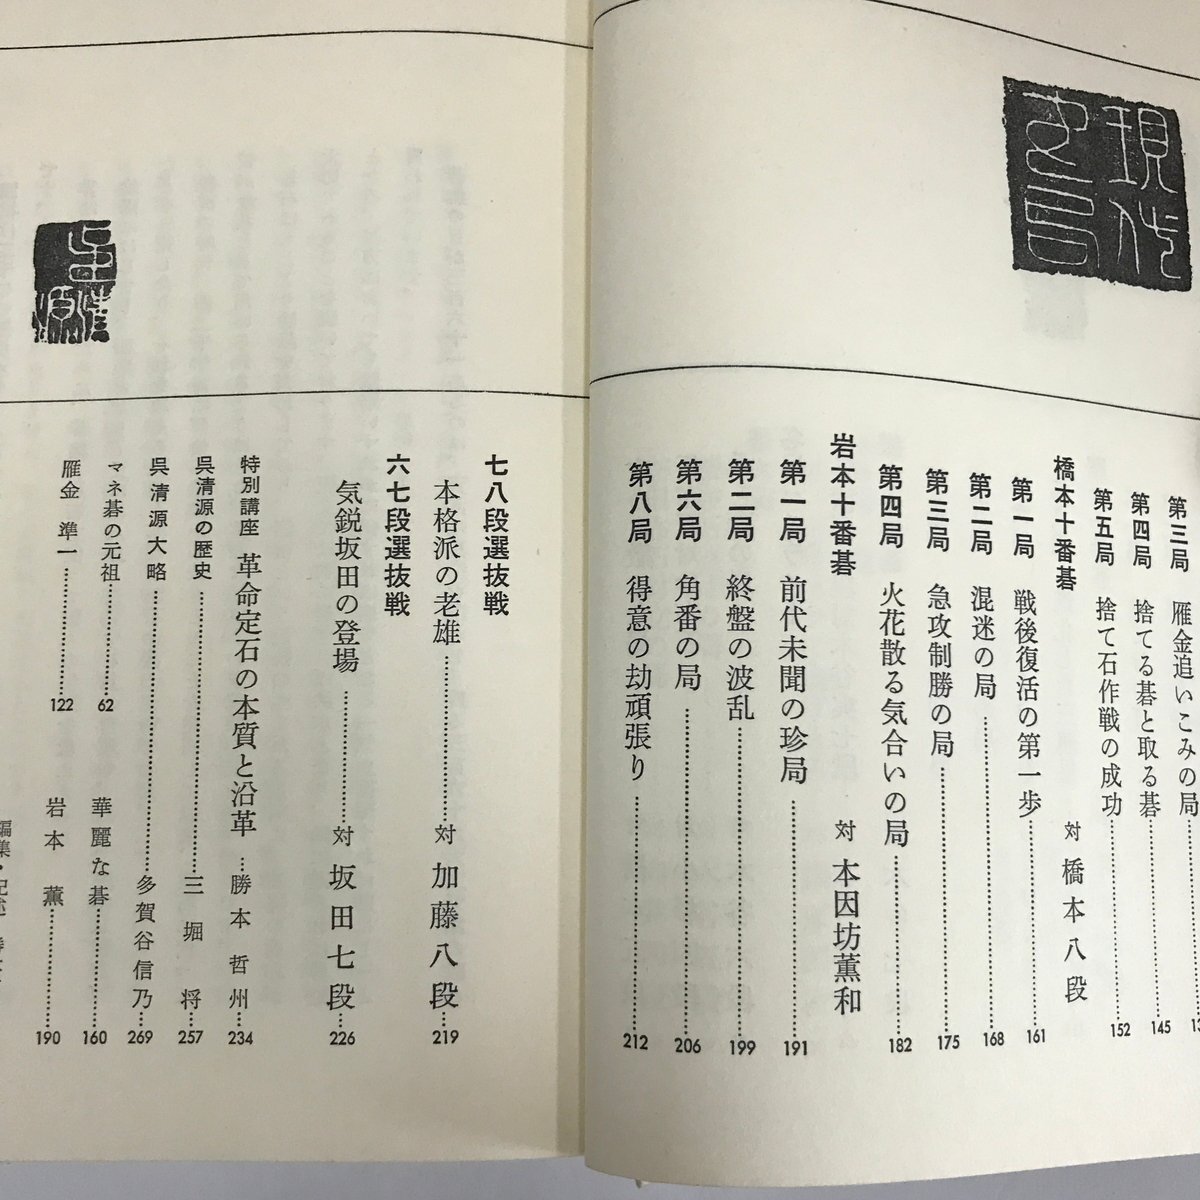 現代之局
第三局 雁金追いこみの局
第四局 捨てる碁と取る碁 145
第五局 捨て石作戦の成功 152
橋本十番碁 対 橋本八段
第一局 戦後復活の第一歩 161
第二局 混迷の局 168
第三局 急攻制勝の局 175
第四局 火花散る気合いの局 182
岩本十番碁 対 本因坊薫和
第一局 前代未聞の珍局 191
第二局 終盤の波乱 199
第六局 角番の局 206
第八局 得意の劫頑張り 212
七八段選抜戦
本格派の老雄 対 加藤八段 219
六七段選抜戦
気鋭坂田の登場 対 坂田七段 226
特別講座 革命定石の本質と沿革 勝本哲州 234
呉清源の歴史 三堀将 257
呉清源大略 多賀谷信乃 269
マネ碁の元祖 62 華麗な碁 160
雁金準一 122 岩本薫 190
編集・記述